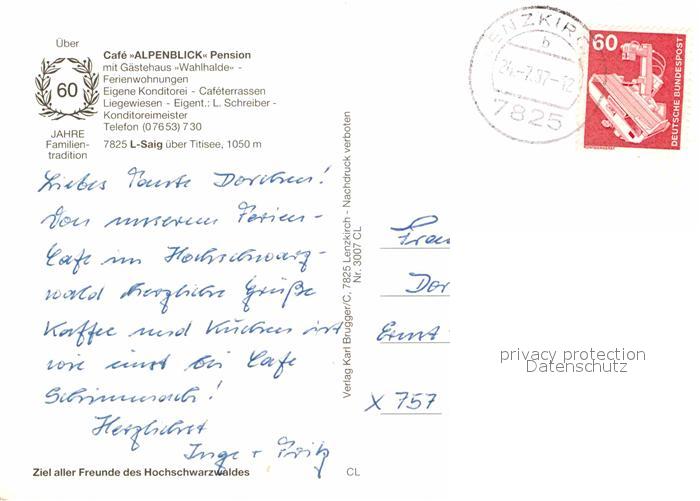 Über
60
JAHRE
Familien-
tradition
Café »ALPENBLICK« Pension
mit Gästehaus »Wahlhalde« -
Ferienwohnungen
Eigene Konditorei - Caféterrassen
Liegewiesen - Eigent.: L. Schreiber -
Konditoreimeister
Telefon (0 76 53) 7 30
7825 L-Saig über Titisee, 1050 m
Liebes Tante Dorchen!
Von unserem Ferien-
Cafe im Hochschwarz-
wald herzliche Grüße
Kaffee und Kuchen ist
wie einst bei Cafe
Herzlichst
Inge + Fritz
Ziel aller Freunde des Hochschwarzwaldes
CL
Verlag Karl Brugger/C, 7825 Lenzkirch - Nachdruck verboten
Nr. 3007 CL
ENZKIRC
b
24.-7.87-12
7825
60
DEUTSCHE BUNDESPOST
Frau
Dor
Ernst
X 757
privacy protection
Datenschutz